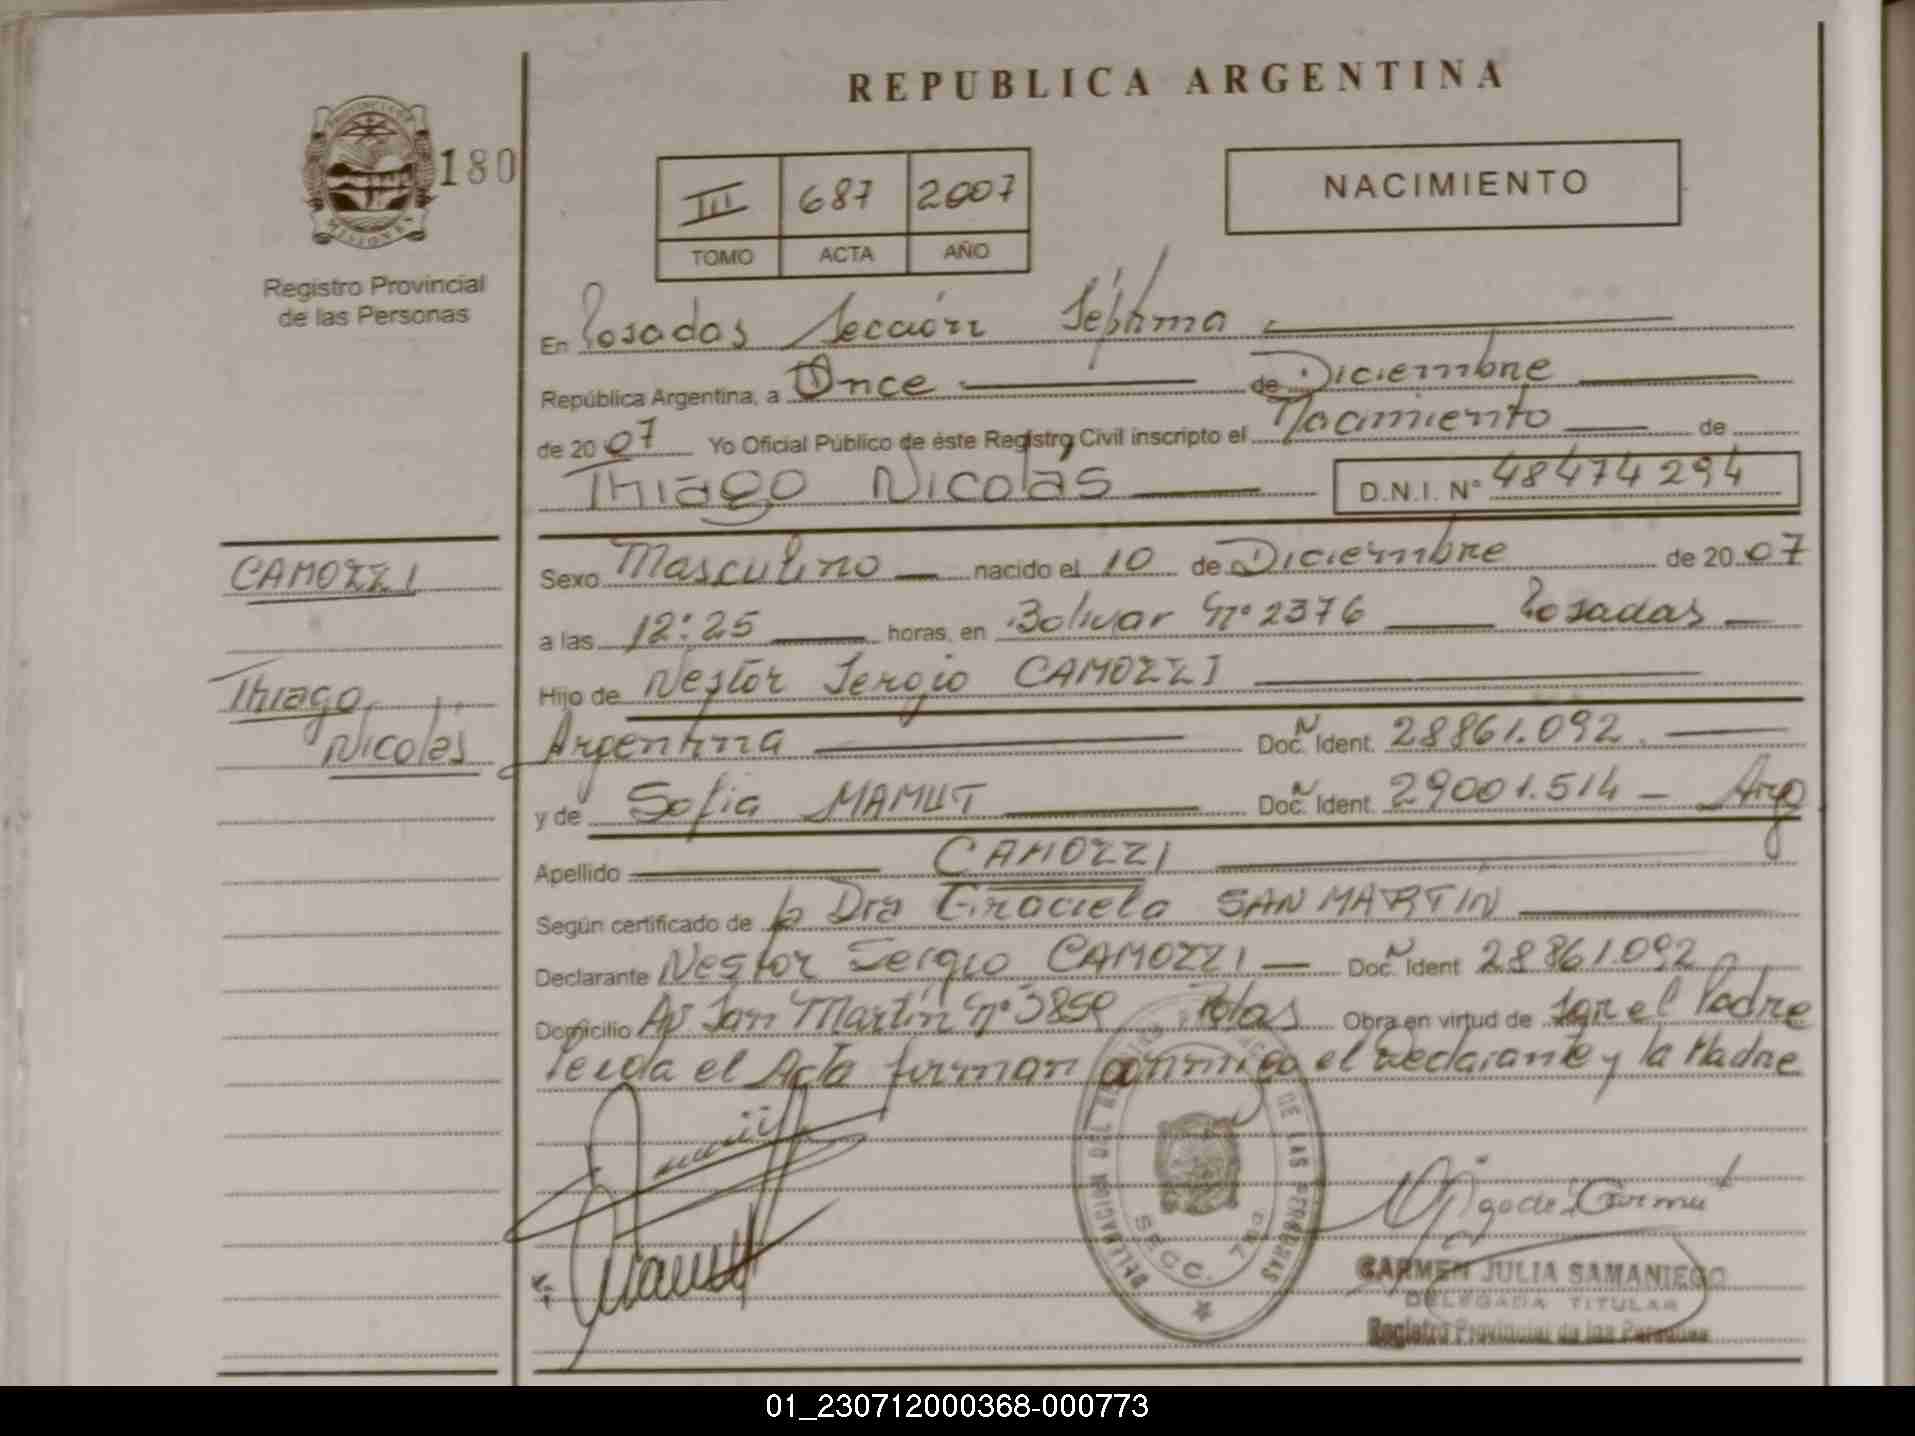 REPUBLICA ARGENTINA
PROVINCIA DE
MISIONES
180
Registro Provincial
de las Personas
III 687 2007
TOMO ACTA AÑO
NACIMIENTO
En Posadas Sección Séptima
República Argentina, a Once de Diciembre
de 2007 Yo Oficial Público de éste Registro Civil inscripto el Nacimiento de
Thiago Nicolás D.N.I. Nº 48474294
CAMOZZI
Thiago
Nicolás
Sexo Masculino nacido el 10 de Diciembre de 2007
a las 12:25 horas, en Bolivar Nº 2376 Posadas
Hijo de Nestor Sergio CAMOZZI
Argentina Doc. Ident. 28861.092
y de Sofia MAMUT Doc. Ident. 29001.514 Arg
Apellido CAMOZZI
Según certificado de la Dra Graciela SAN MARTIN
Declarante Nestor Sergio CAMOZZI Doc. Ident 28861.092
Domicilio Av San Martín Nº 3850 Pdas Obra en virtud de Ser el Padre
leida el Acta firman conmigo el declarante y la Madre
SECC. 7ma
DE LAS PERSONAS
CARMEN JULIA SAMANIEGO
DELEGADA TITULAR
Registro Provincial de las Personas
01_230712000368-000773